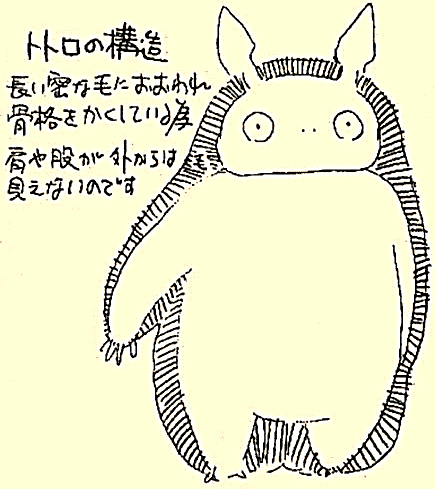 トトロの構造
長い密な毛におおわれ
骨格をかくしている為
肩や股が外からは
見えないのです
毛